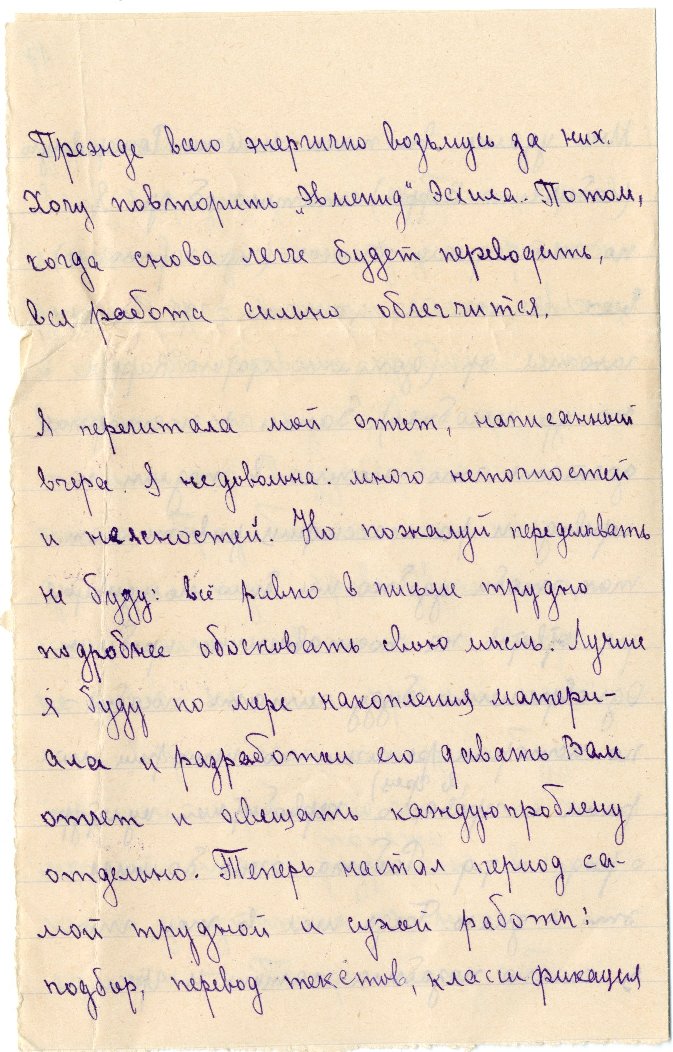 Прежде всего энергично возьмусь за них.
Хочу повторить „Эвменид" Эсхила. Потом,
когда снова легче будет переводить,
вся работа сильно облегчится.
Я перечитала мой отчет, написанный
вчера. Я недовольна. много неточностей
и неясностей. Но пожалуй переделывать
не буду: всё равно в письме трудно
подробнее обосновать свою мысль. Лучше
я буду по мере накопления матери-
ала и разработки его давать Вам
отчет и освещать каждую проблему
отдельно. Теперь настал период са-
мой трудной и сухой работы:
подбор, перевод текстов, классификация